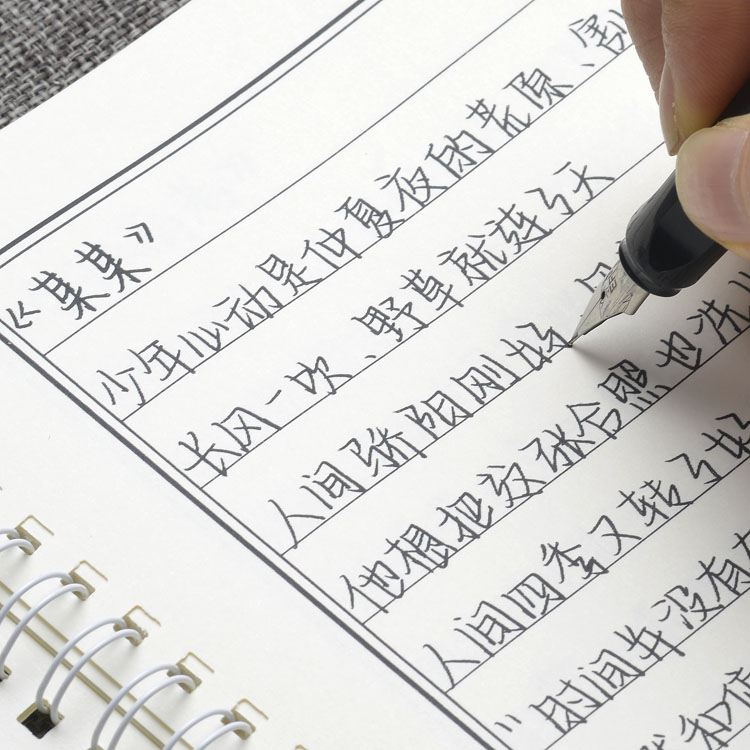 《某某》
少年心动是仲夏夜的荒原、割
长风一吹、野草就连了天
人间骄阳刚好
他想把这张合照也洗
人间四季又转了好
"时间并没有
和